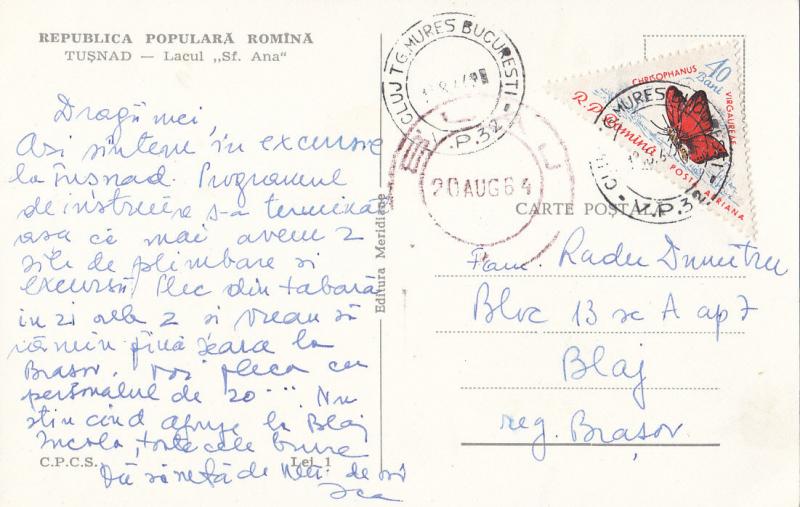 REPUBLICA POPULARĂ ROMÎNĂ
TUȘNAD — Lacul „Sf. Ana“
Dragii mei,
Azi sîntem în excursie
la Tușnad. Programul
de instruire s-a terminat
așa că mai avem 2
zile de plimbare și
excursii. Plec din tabără
în zi 2 și vreau să
rămîn pînă seara la
Brașov. Voi pleca cu
personalul de 20... Nu
știu cînd ajung la Blaj
Încolo, toate cele bune
Vă de
C.P.C.S.
Lei 1
Editura Meridiane
CLUJ TG.MUREȘ BUCUREȘTI
V.P.32
20 AUG 64
CARTE POȘTALĂ
40 Bani
CHRISOPHANUS
VIRGAUREAE
R.P. Romînă
POSTA AERIANA
MUREȘ
V.P.32
Fam. Radu Dumitru
Bloc 13 sc A ap 7
Blaj
reg. Brașov